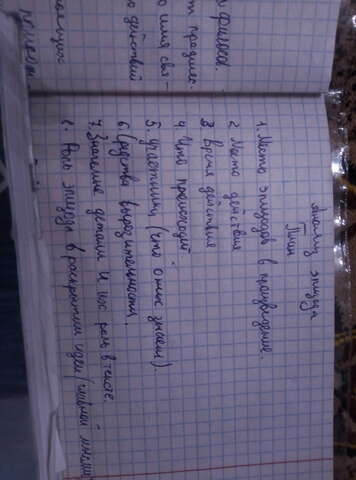 Анализ эпизода
План
1. Место эпизодов в произведение.
2 Место действия
3 Время действия
4. Что происходит.
5. участники (что о них знаем).
6 Средства выразительности.
7. Значимые детали и их роль в тексте.
8. Роль эпизода в раскрытии идеи (главной мысли
философ.
предме
о имя свя-
действий